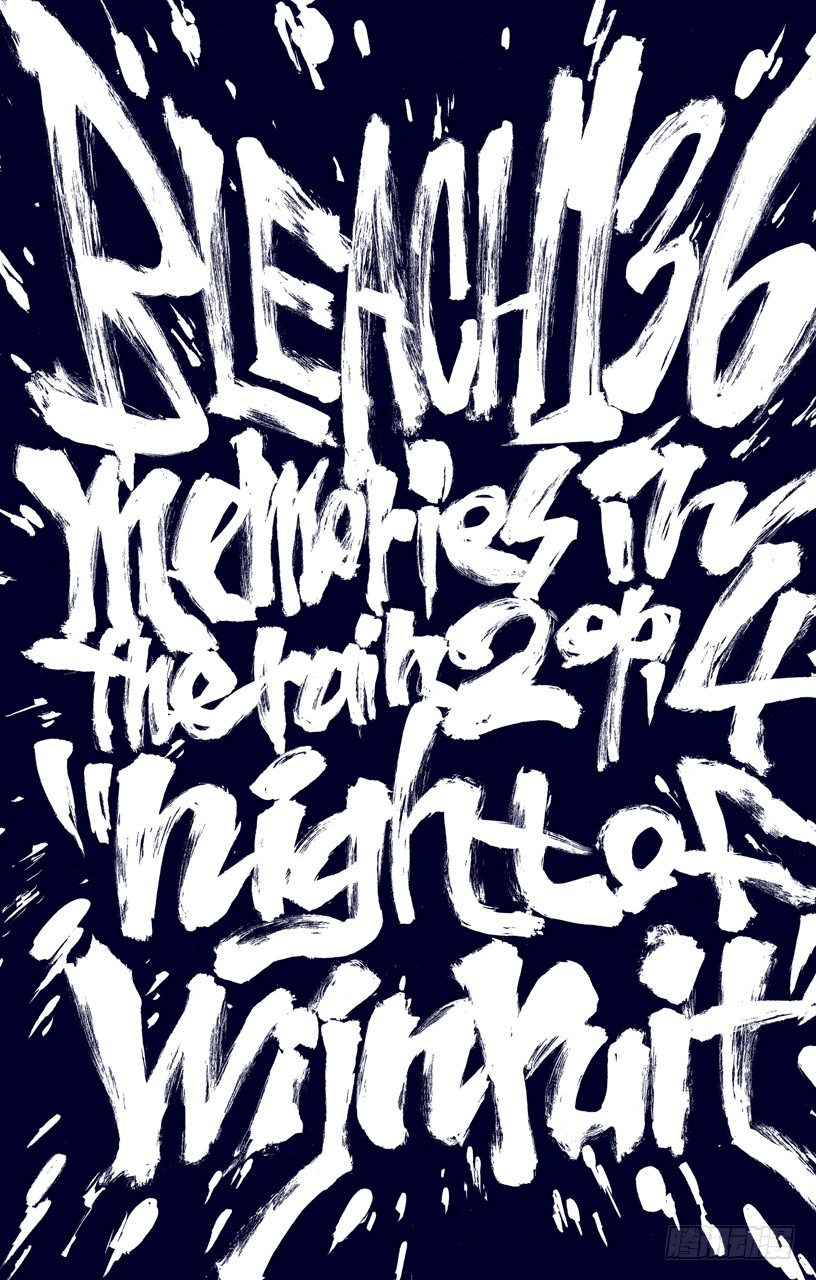 BLEACH 136
memories in
the rain 2 op. 4
"night of
wijnruit"
腾讯动漫